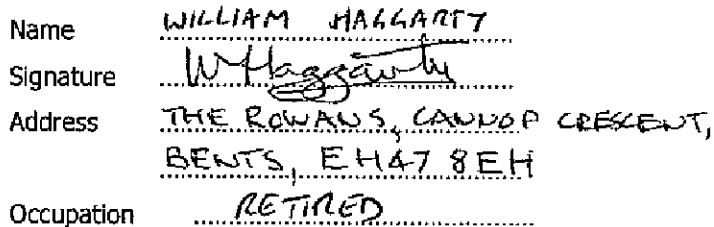 Name WILLIAM HAGGARTY
Signature W Haggarty
Address THE ROWANS, CANNOP CRESCENT,
BENTS, EH47 8EH
Occupation RETIRED